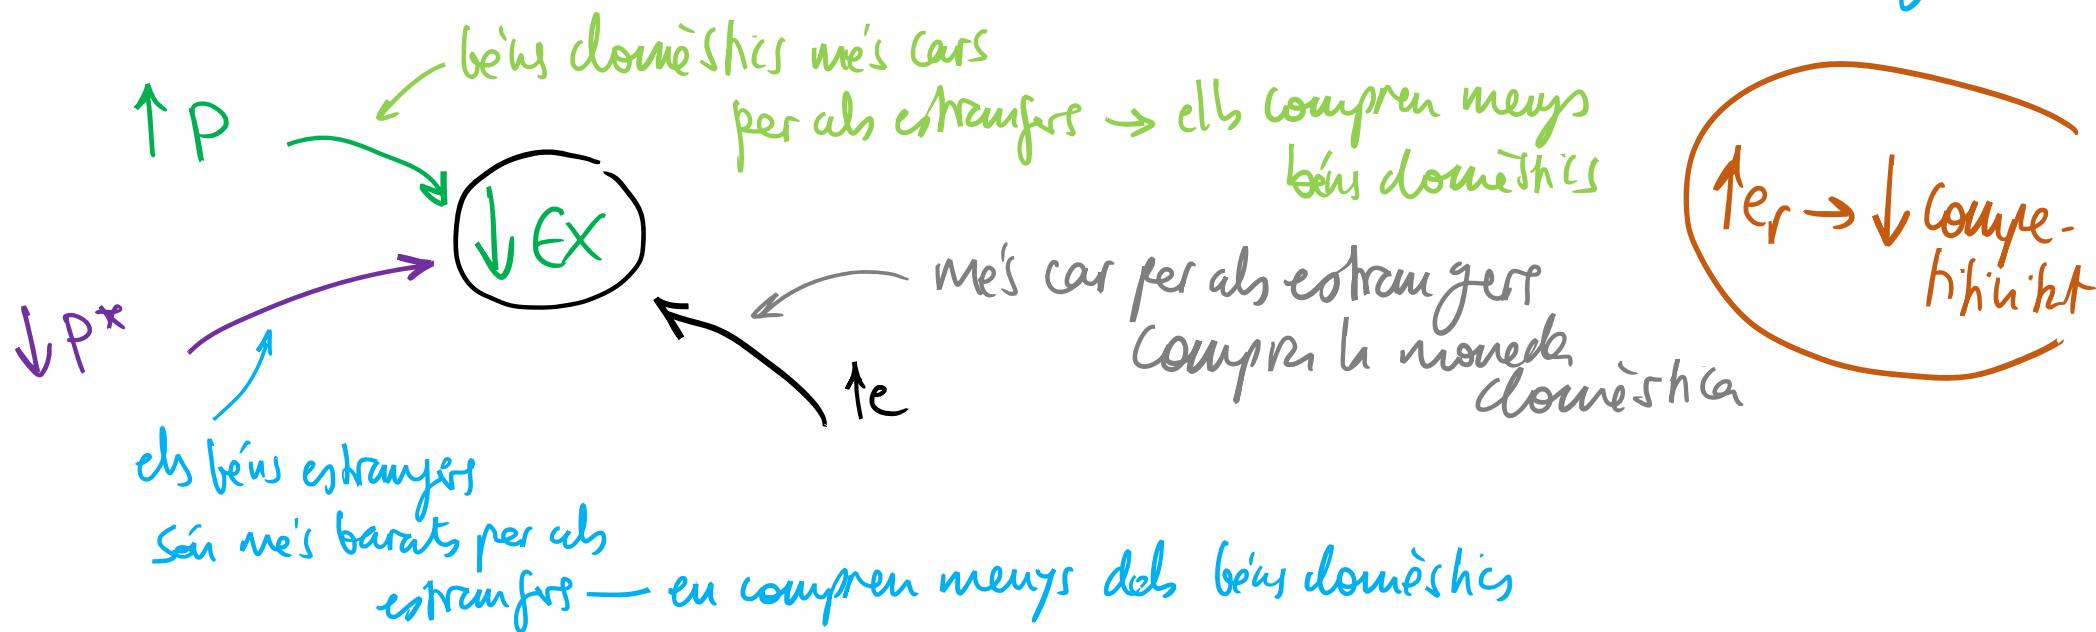 béns domèstics més cars
per als estrangers → ells compren menys
béns domèstics
↑ P
↓ EX
↓ P*
↑ e
més car per als estrangers
comprar la moneda
domèstica
↑ er → ↓ compe-
titivitat
els béns estrangers
són més barats per als
estrangers — en compren menys dels béns domèstics